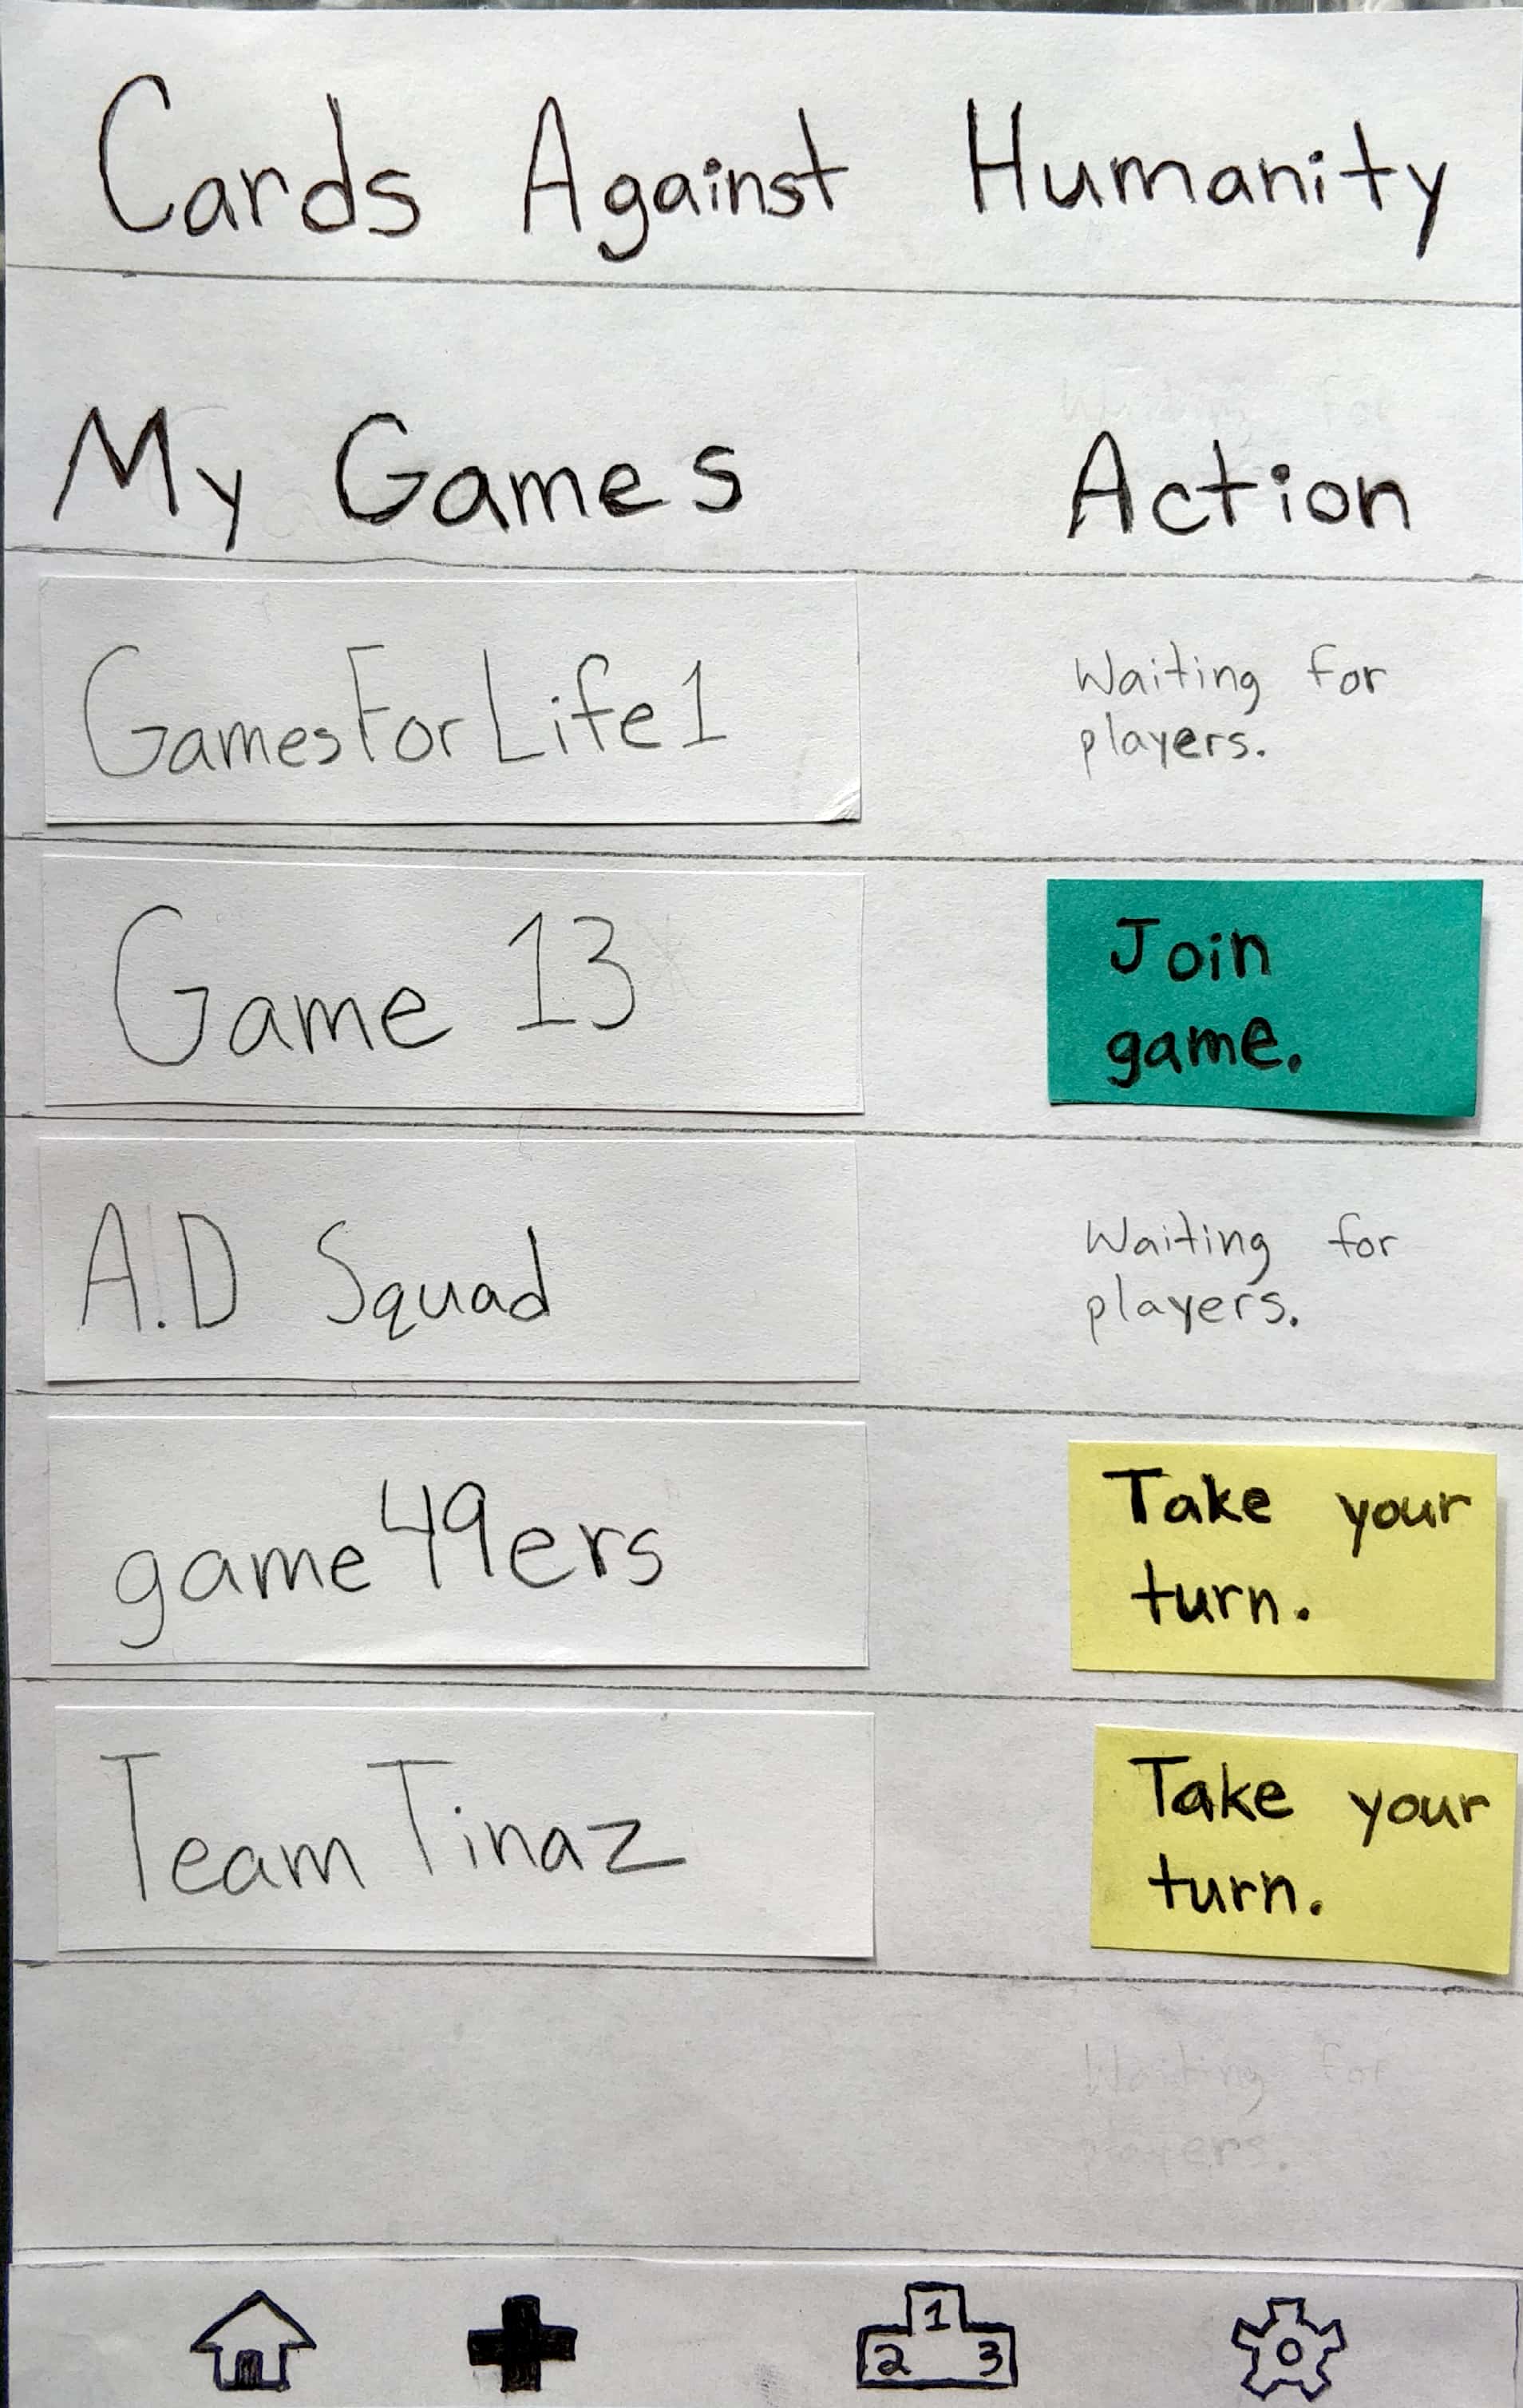 Cards Against Humanity
Waiting for
My Games Action
GamesForLife1
Waiting for
players.
Game 13
Join
game.
A.D Squad
Waiting for
players.
game49ers
Take your
turn.
Team Tinaz
Take your
turn.
Waiting for
players.
1
2 3